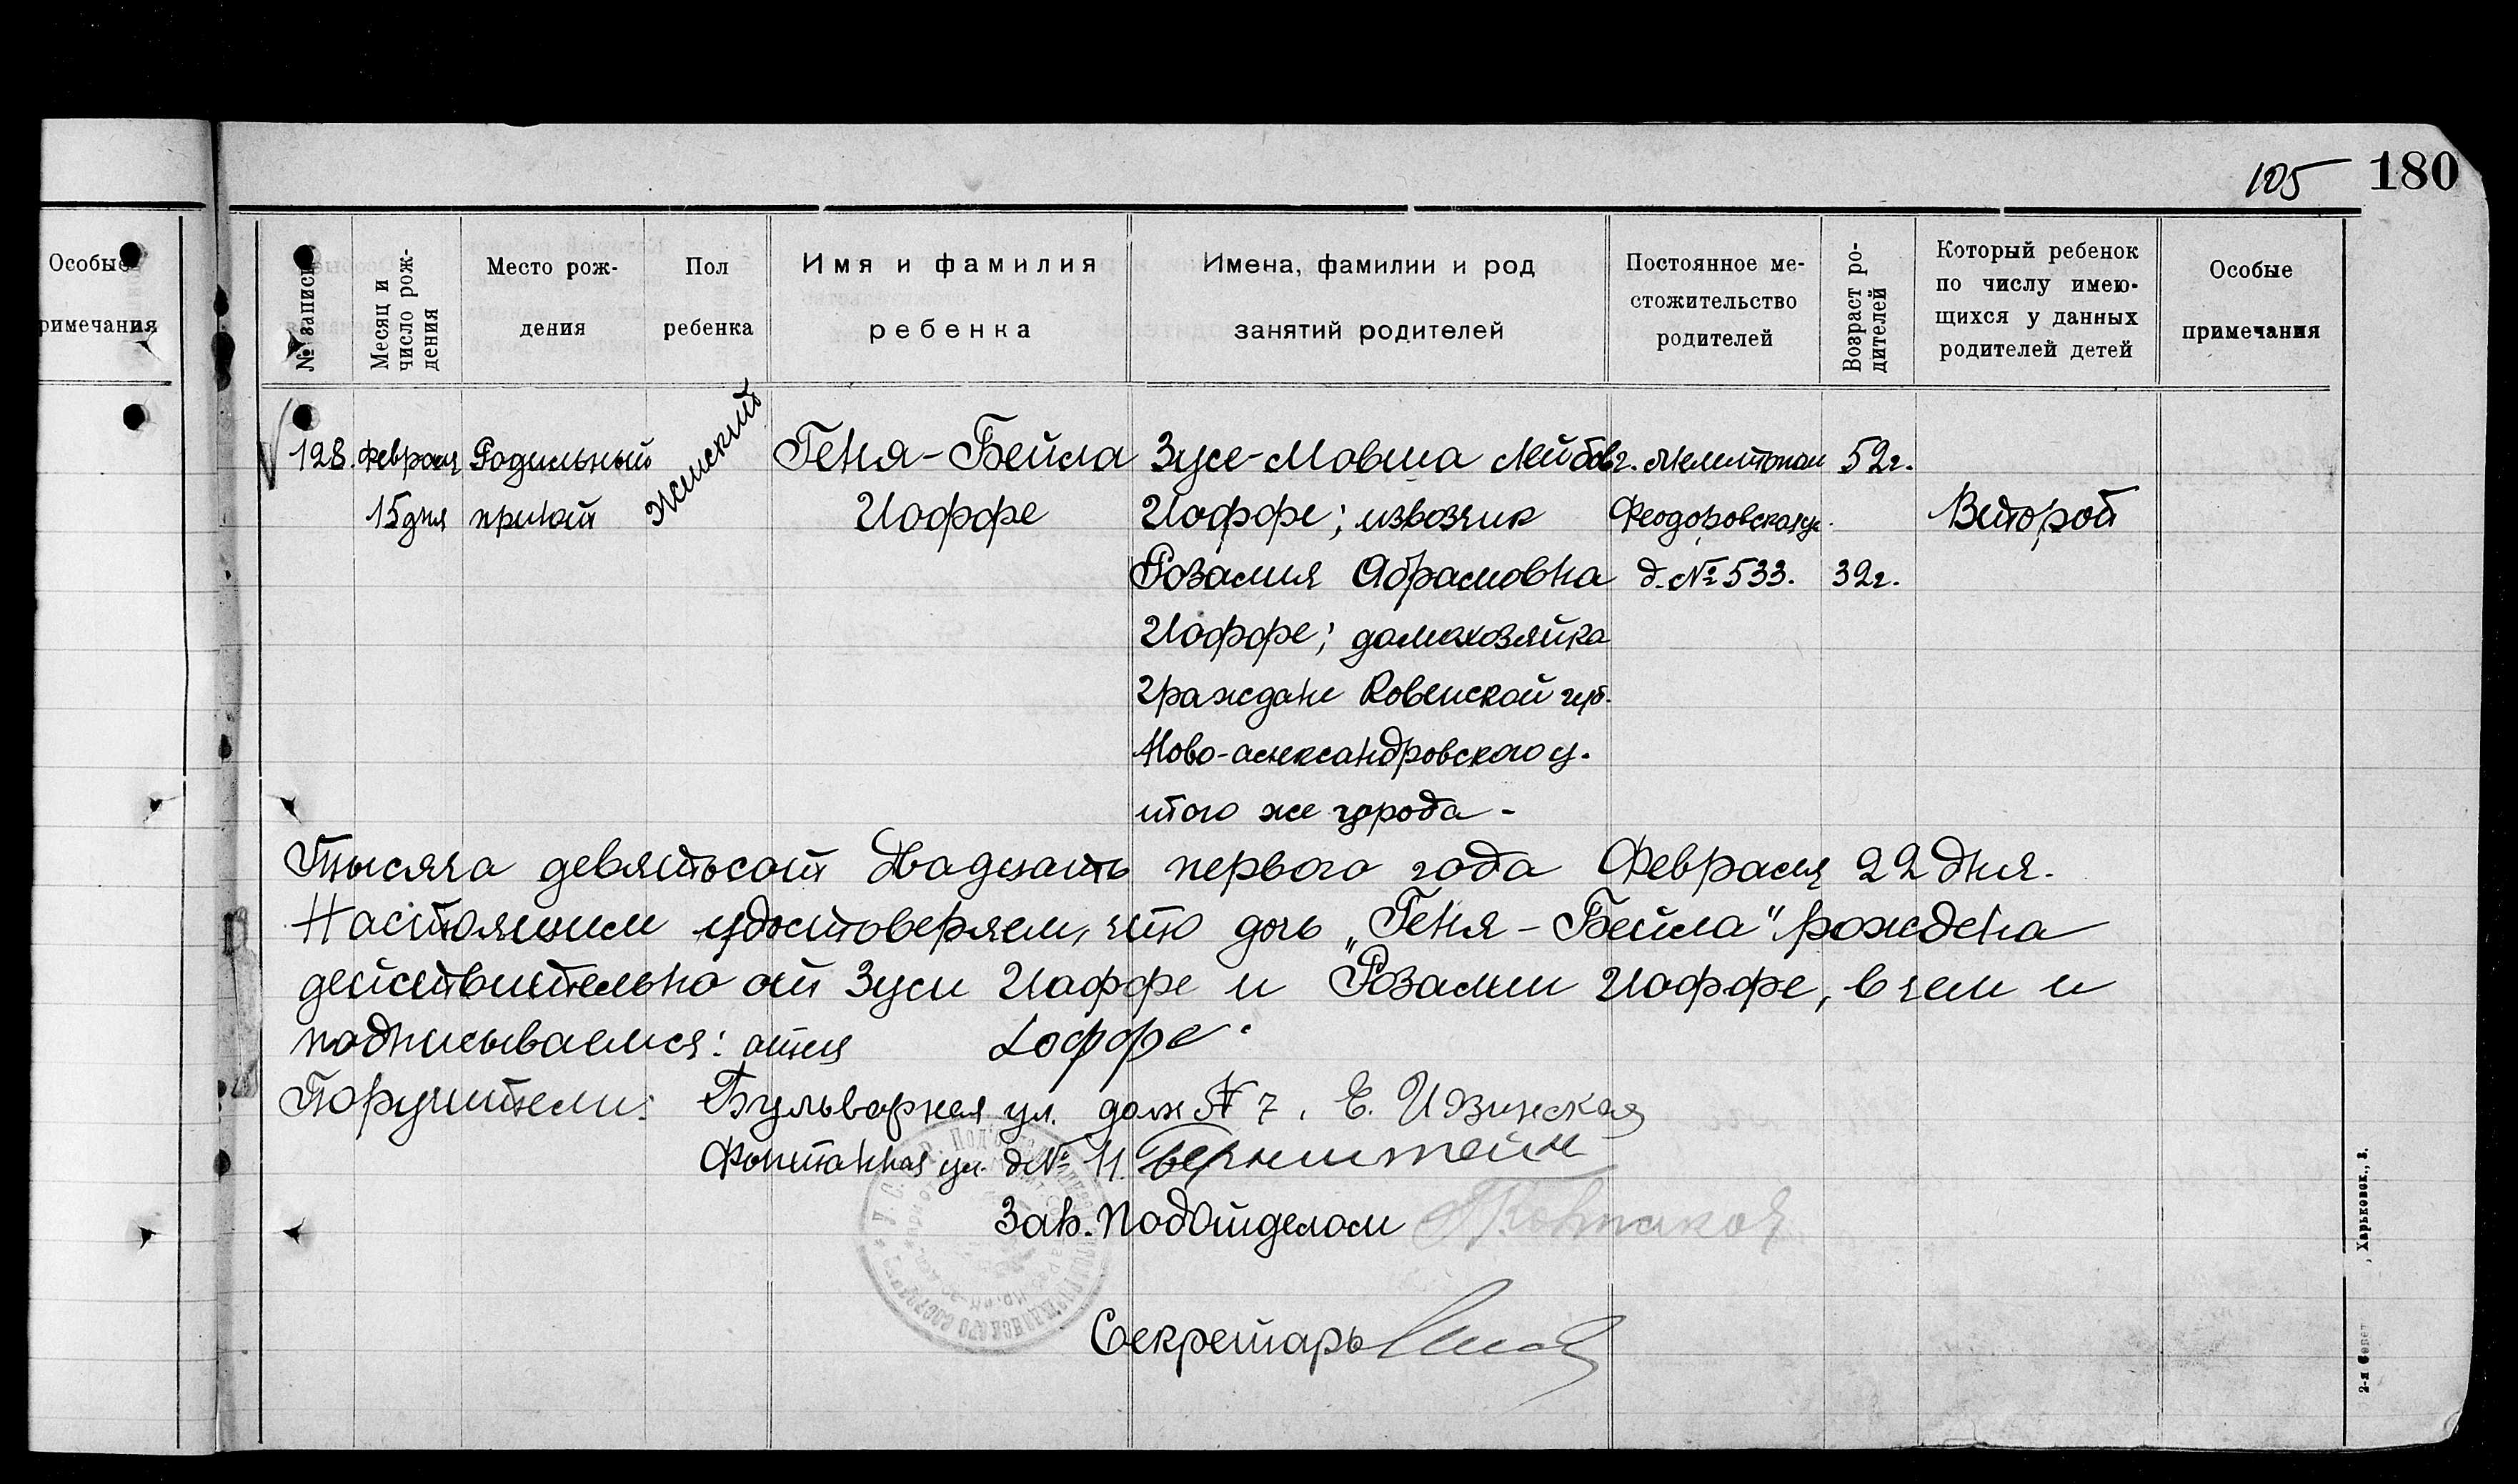 105 180
Особые
римечания
№ записи
Месяц и
число рож-
дения
Место рож-
дения
Пол
ребенка
Имя и фамилия
ребенка
Имена, фамилии и род
занятий родителей
Постоянное ме-
стожительство
родителей
Возраст ро-
дителей
Который ребенок
по числу имею-
щихся у данных
родителей детей
Особые
примечания
128. Февраля Родильный Женский Геня-Бейла Зусе-Мовша Лейбов г. Мелитополь 52 г.
15 дня приют Иоффе Иоффе; извозчик Феодоровская ул. Второй
Розалия Абрамовна д. № 533. 32 г.
Иоффе; домохозяйка
граждане Ковенской губ.
Ново-александровского у.
того же города -
Тысяча девятьсот двадцать первого года Февраля 22 дня.
Настоящим удостоверяем, что дочь „Геня-Бейла" рождена
действительно от Зуси Иоффе и Розалии Иоффе, в чем и
подписываемся: отец Иоффе
Поручители: Бульварная ул. дом № 7. Е.
Фонтанная ул. д № 11. Бернштейн
Зав. Подотделом
Секретарь
Харьковск., 3.
2-я Совет